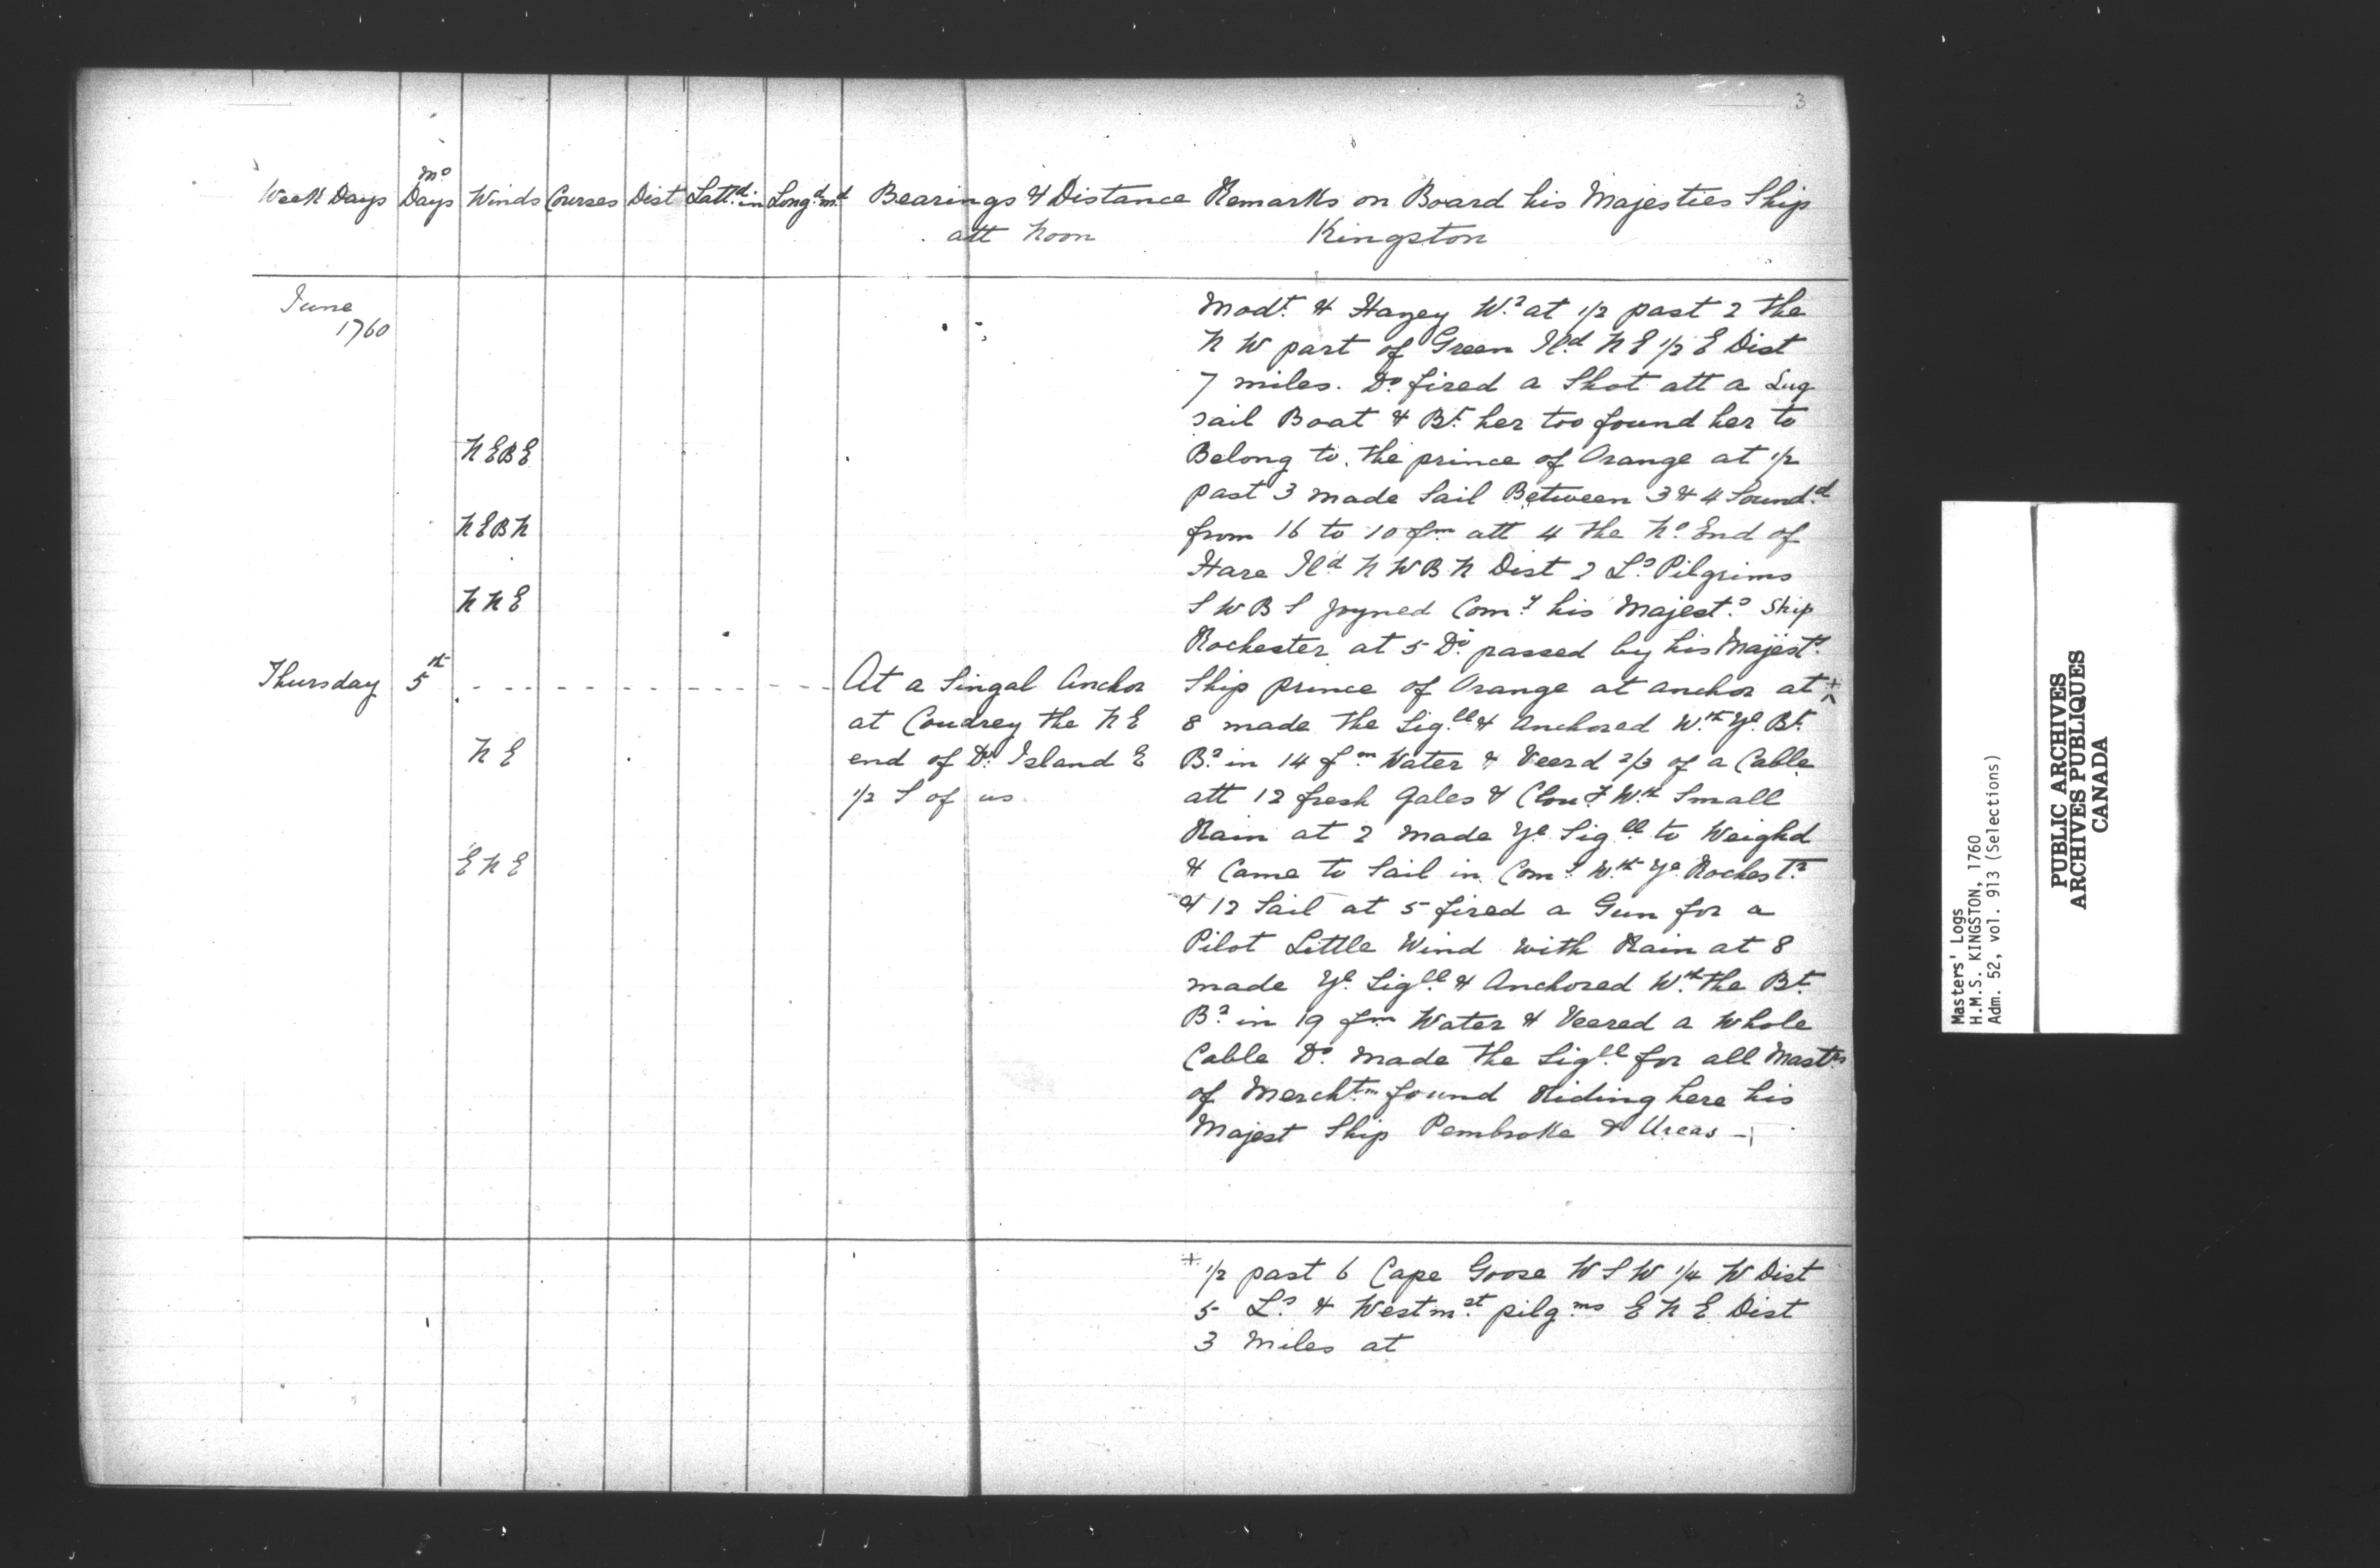 3
Week Days Mo Days Winds Courses Dist Lattd. in Longd. md Bearings & Distance Remarks on Board his Majesties Ship
att Noon Kingston
June
1760
Modt. & Hazey Wr. at 1/2 past 2 the
N W part of Green Ild N E 1/2 E Dist
7 miles. Do. fired a Shot att a Lug
sail Boat & Bt. her too found her to
N E B E
Belong to the prince of Orange at 1/2
past 3 made Sail Between 3 & 4 Soundd
N E B N
from 16 to 10 fm. att 4 the No. End of
Hare Ild N W B N Dist 2 Ls. Pilgrims
N N E
S W B S Joyned Comy. his Majests. Ship
Rochester at 5 Do. passed by his Majests.
Thursday 5th - - - - - - - - - - - At a Singal Anchor
Ship prince of Orange at anchor at +
at Coudrey the N E
8 made the Sigll. & Anchored Wth. Ye. Bt.
N E
end of Do. Island E
Br. in 14 fm Water & Veerd 2/3 of a Cable
1/2 S of us
att 12 fresh Gales & Clouy. Wth. Small
Rain at 2 made Ye. Sigll. to Weighd
E N E
& Came to Sail in Comy. Wth. Ye. Rochestr.
& 12 Sail at 5 fired a Gun for a
Pilot Little Wind with Rain at 8
made Ye. Sigll. & Anchored Wth. the Bt.
Br. in 19 fm Water & Veered a Whole
Cable Do. made the Sigll. for all Mastrs
of Merchtm. found Riding here his
Majest Ship Pembroke & Ureas -
+ 1/2 past 6 Cape Goose W S W 1/4 W Dist
5 Ls. & Westmst. pilgms E N E Dist
3 Miles at
Masters' Logs
H.M.S. KINGSTON, 1760
Adm. 52, vol. 913 (Selections)
PUBLIC ARCHIVES
ARCHIVES PUBLIQUES
CANADA